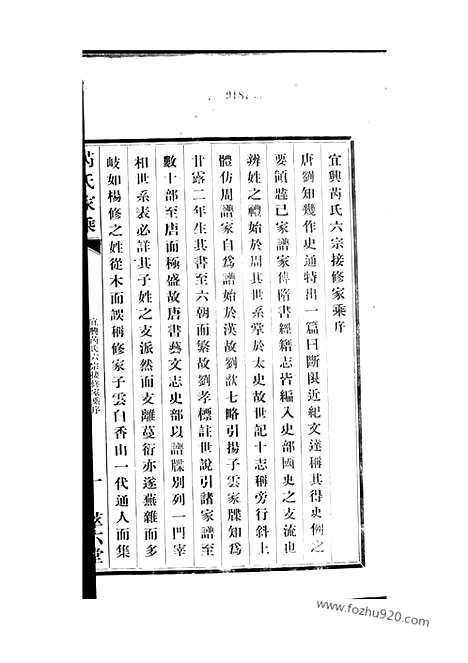 宜興芮氏六宗接修家乘序
唐劉知幾作史通特出一篇曰斷限近紀文達稱其得史例之
要領蓋已家譜家傳隋書經籍志皆編入史部國史之支流也
辨姓之禮始於周其世系掌於太史故世記十志稱旁行斜上
體仿周譜家自為譜始於漢故劉歆七略引揚子雲家牒知為
甘露二年生其書至六朝而繁故劉孝標註世說引諸家譜至
數十部至唐而極盛故唐書藝文志史部以譜牒別列一門宰
相世系表必詳其子姓之支派然而支離蔓衍亦遂蕪雜而多
岐如楊修之姓從木而誤稱修家子雲白香山一代通人而集
芮氏家乘
宜興芮氏六宗接修家乘序
一
六堂
www.fozhu920.com